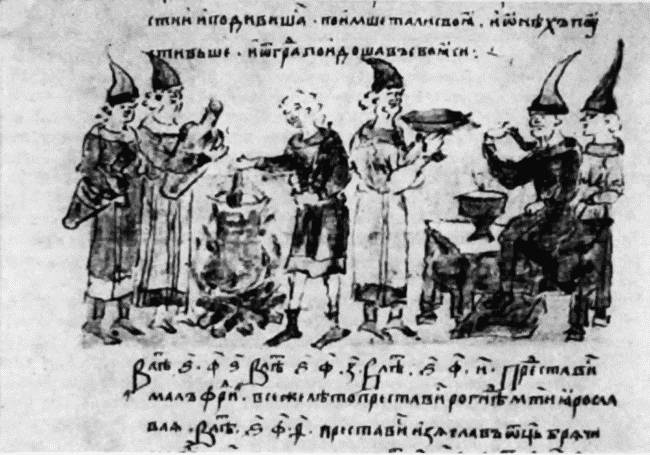 и подивиша · поимше тали своꙗ , и ѿ нѣхъ
тивъше · и ѿ граⷣ поидоша въ своꙗси :
В лѣⷮ ѕ҃ · ф҃ · ѕ҃ В лѣⷮ ѕ҃ · ф҃ · з҃ · В лѣⷮ · ѕ҃ · ф҃ · и҃ · Преставиⷭ
малъфриⷣ · в се же лѣто преставиⷭ рогнѣⷣ мт҃и ꙗросла
влѧ · В лѣⷮ · ѕ҃ · ф҃ · преставиⷭ изѧславъ ѿц҃ь брѧчи